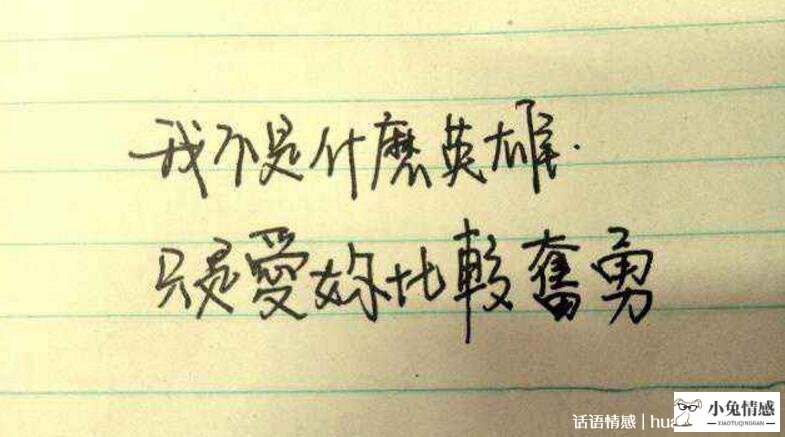 我不是什麼英雄.
只是愛妳比較奮勇
话语情感 | hua
小兔情感
XIAOTUQINGGAN